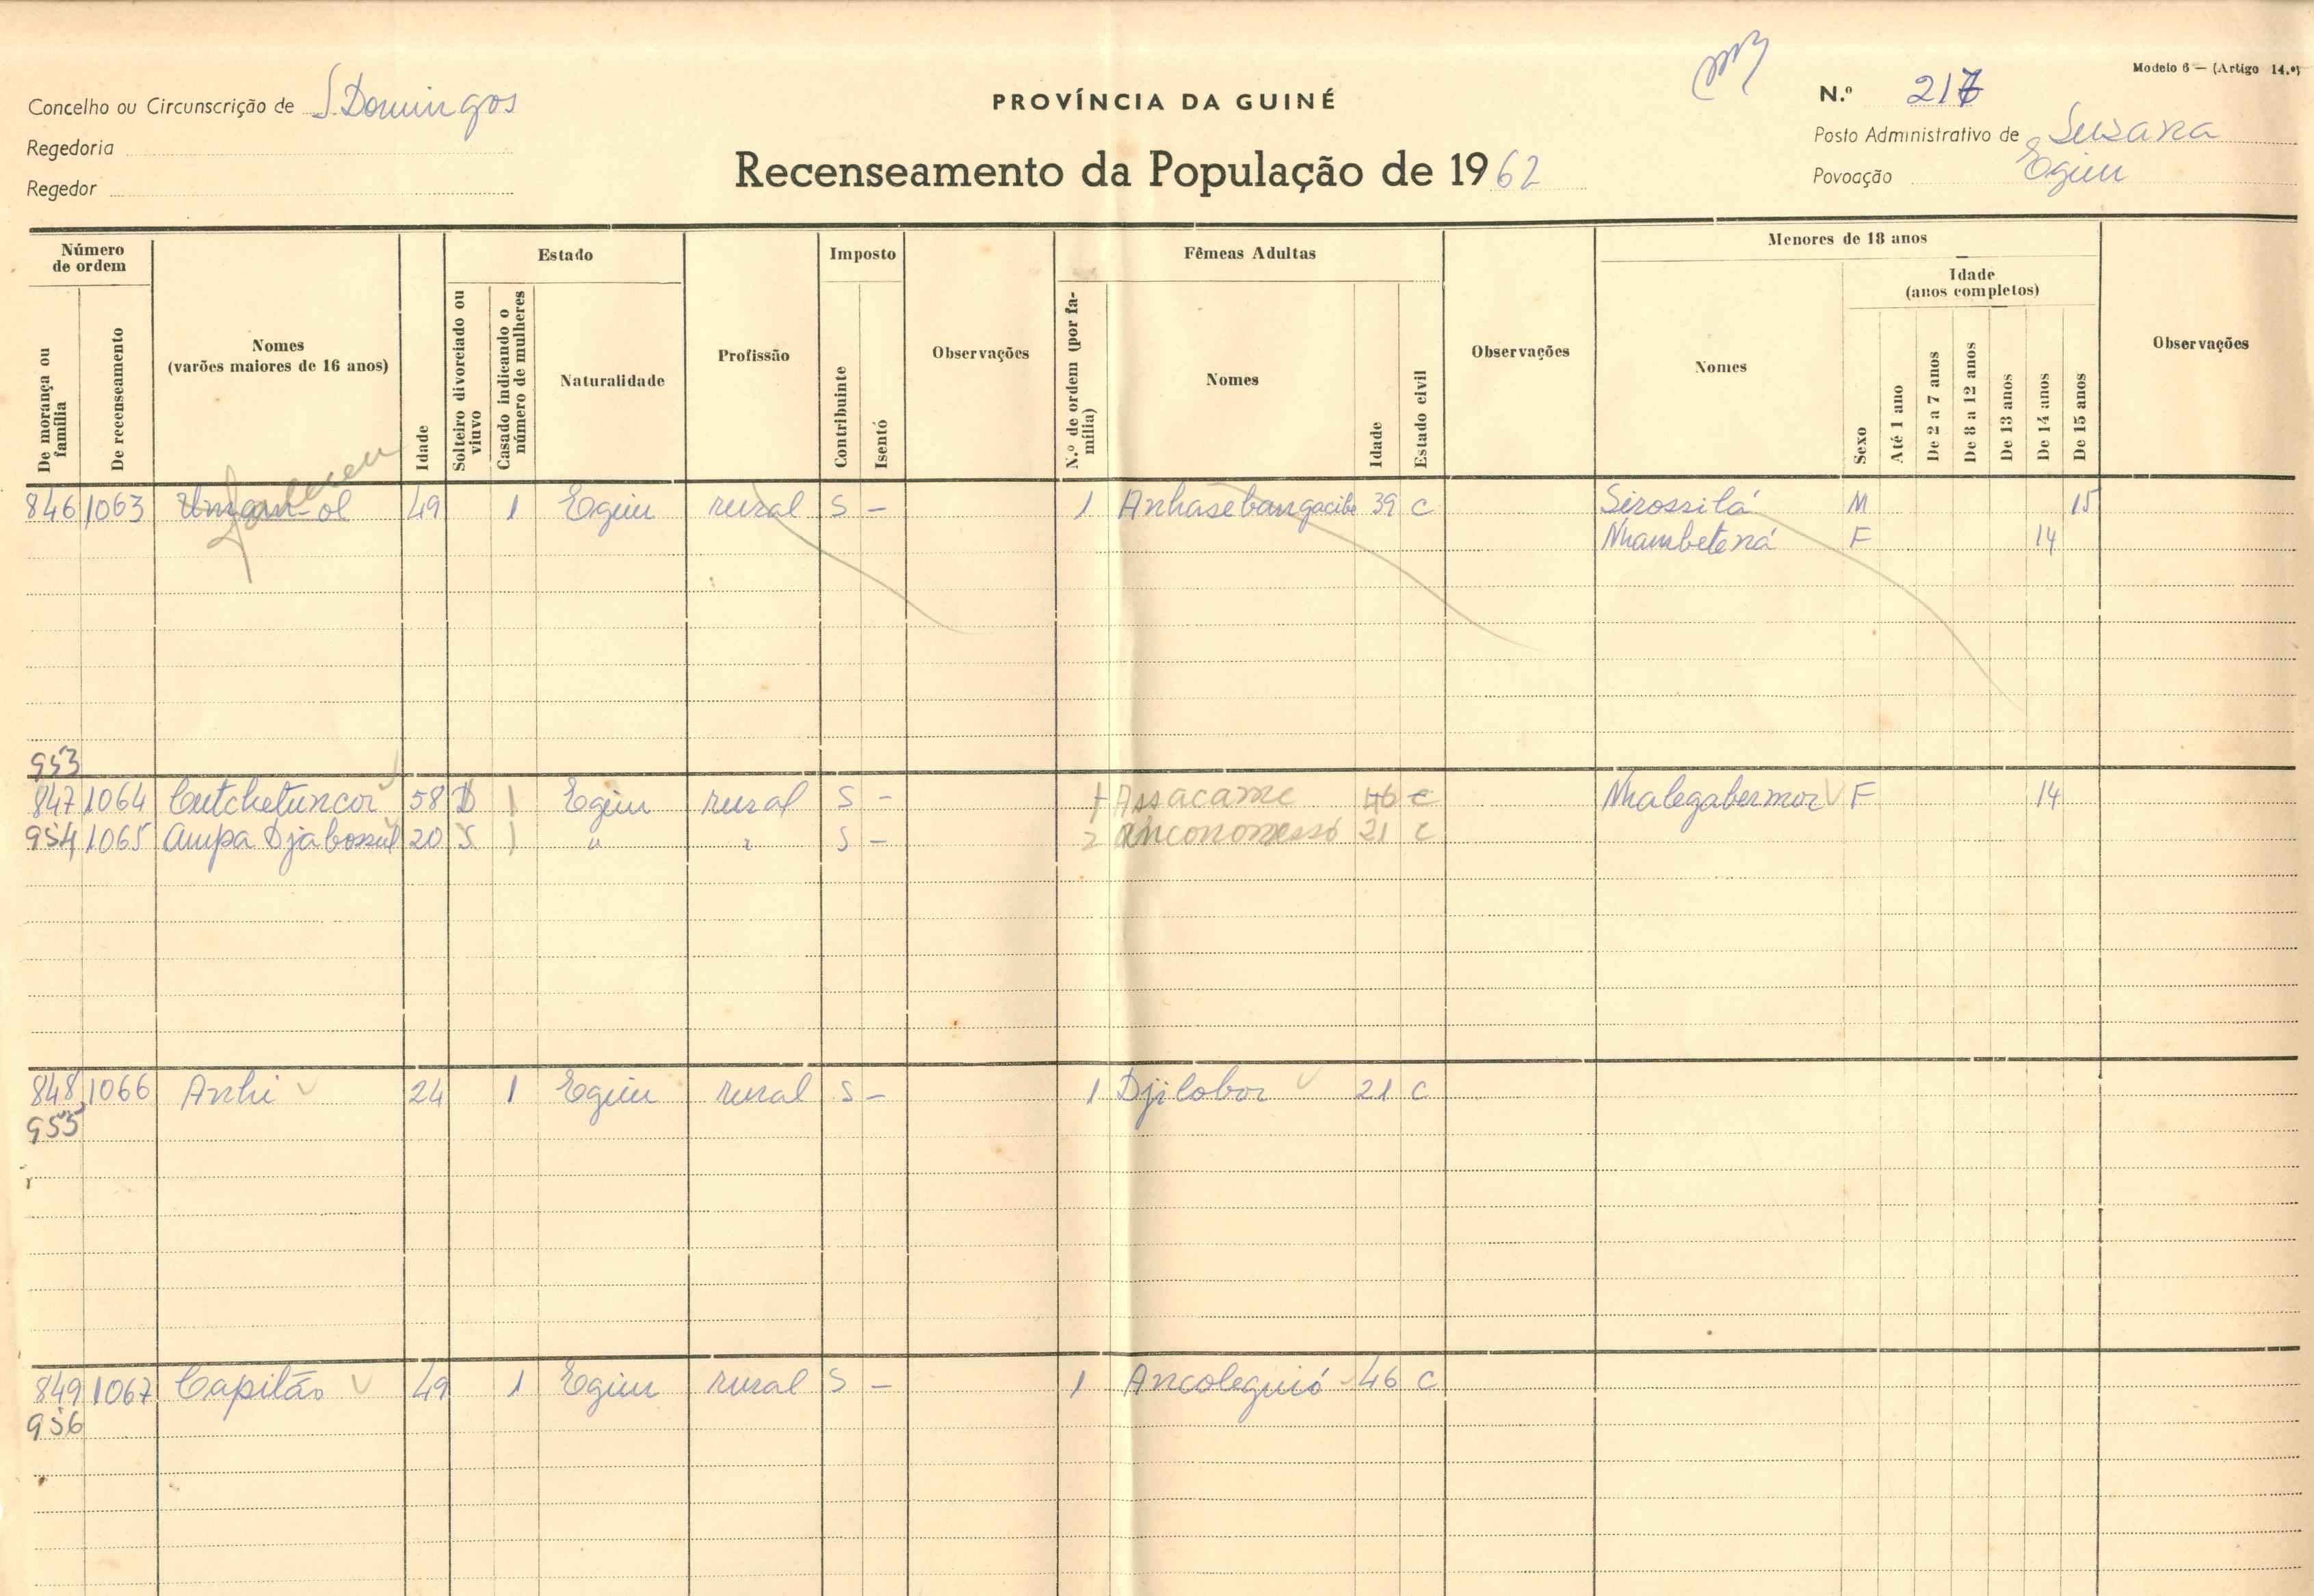 Modelo 6 — (Artigo 14.º)
Concelho ou Circunscrição de S. Domingos
PROVÍNCIA DA GUINÉ
N.º 217
Regedoria
Posto Administrativo de Suzana
Regedor
Recenseamento da População de 1962
Povoação Egim
Número de ordem
De morança ou família
De recenseamento
Nomes
(varões maiores de 16 anos)
Idade
Estado
Solteiro divorciado ou viuvo
Casado indicando o número de mulheres
Naturalidade
Profissão
Imposto
Contribuinte
Isento
Observações
Fêmeas Adultas
N.º de ordem (por família)
Nomes
Idade
Estado civil
Observações
Menores de 18 anos
Nomes
Sexo
Idade
(anos completos)
Até 1 ano
De 2 a 7 anos
De 8 a 12 anos
De 13 anos
De 14 anos
De 15 anos
Observações
846 1063 49 1 Egim rural S - 1 Anhasebangacibe 39 C Sirossilá M 15
Nhambetená F 14
953
847 1064 Cutchetuncor 58 D 1 Egim rural S - 1 Assacame 46 C Nhalegabermor F 14
954 1065 Ampa Djabossul 20 S 1 " " S - 2 Anconomessó 21 C
848 1066 Anhi 24 1 Egim rural S - 1 Djilobor 21 C
955
849 1067 Capitão 49 1 Egim rural S - 1 Ancoleguió 46 C
956